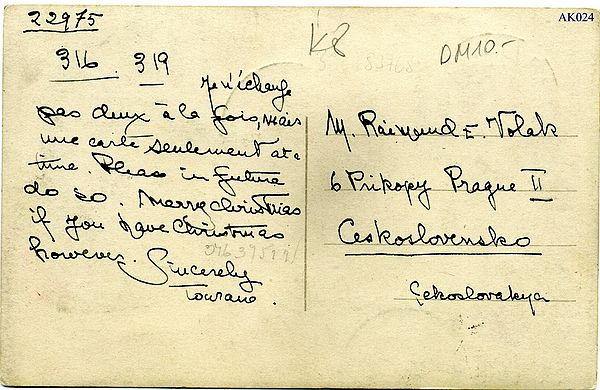 22975
AK024
K8
DM10.-
316 . 319
Je n'échange
pas deux à la fois, mais
une carte seulement at a
time. Please in future
do so. Marry Christmas
if you have Christmas
however. Sincerely
Tourane.
M. Raimund E. Volak
6 Prikopy Prague II
Ceskoslovensko
Cekoslovakya